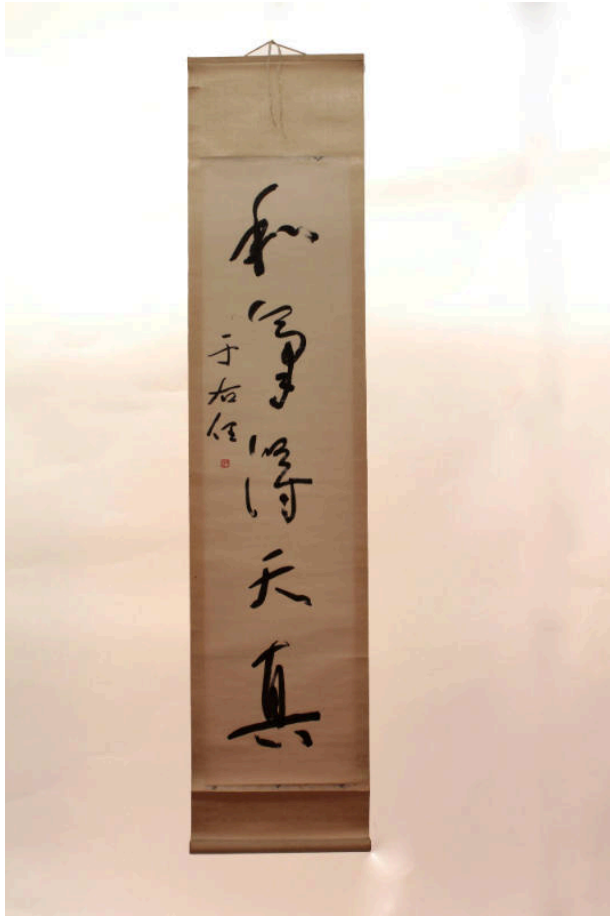 和得天真
于右任